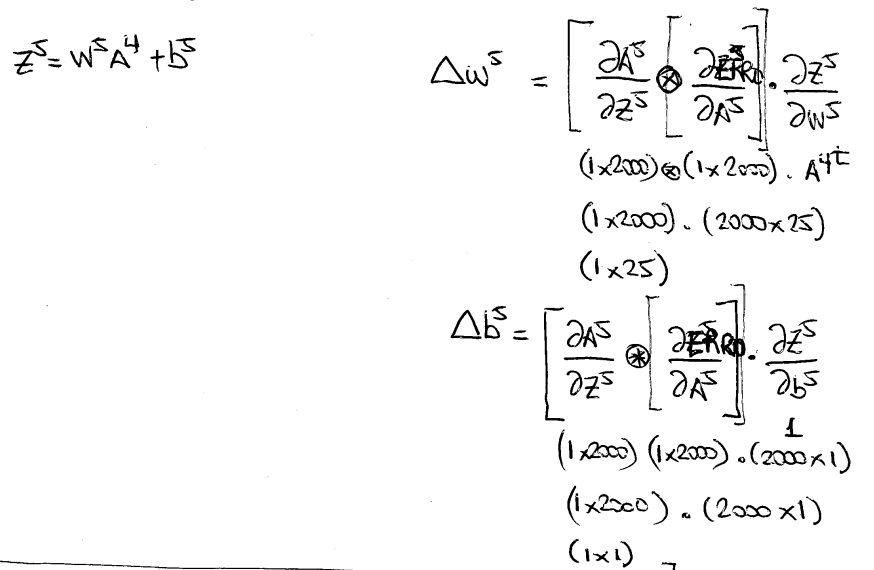 Z⁵ = W⁵A⁴ + b⁵
ΔW⁵ = [ ∂A⁵/∂Z⁵ ⊛ [ ∂ERRO/∂A⁵ ] ] . ∂Z⁵/∂W⁵
(1x2000) ⊛ (1x2000) . A⁴ᵗ
(1x2000) . (2000x25)
(1x25)
Δb⁵ = [ ∂A⁵/∂Z⁵ ⊛ [ ∂ERRO/∂A⁵ ] ] . ∂Z⁵/∂b⁵
1
(1x2000) (1x2000) . (2000x1)
(1x2000) . (2000x1)
(1x1)